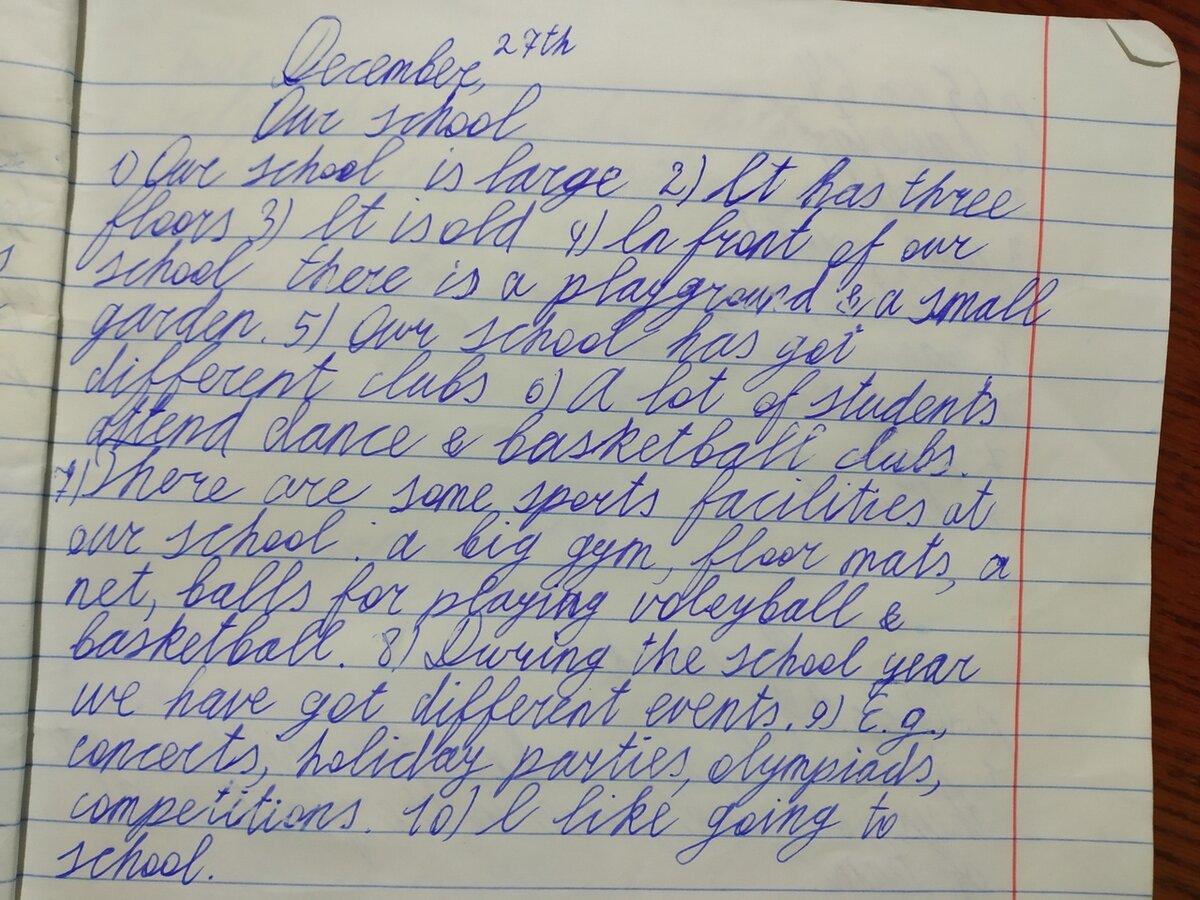 December, 27th
Our school
1) Our school is large 2) It has three
floors 3) It is old 4) In front of our
school there is a playground & a small
garden. 5) Our school has got
different clubs 6) A lot of students
attend dance & basketball clubs.
7) There are some sports facilities at
our school: a big gym, floor mats, a
net, balls for playing voleyball &
basketball. 8) During the school year
we have got different events. 9) E.g.,
concerts, holiday parties, olympiads,
competitions. 10) I like going to
school.